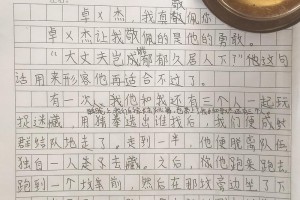 敬
卓×杰,我真敬佩你
卓×杰让我敬佩的是他的勇敢。
"大丈夫岂成能郁郁久居人下?"他这句
话用来形容他再适合不过了。
有一次,我他和我还有三个人一起玩
捉迷藏,用猜拳选出谁找后,我们便成
群结队地走了。走到一半,他便脱离队伍,
独自一人走去藏。之后,他跑来跑去
跑到一个坟前,然后在那坟旁边坐了下